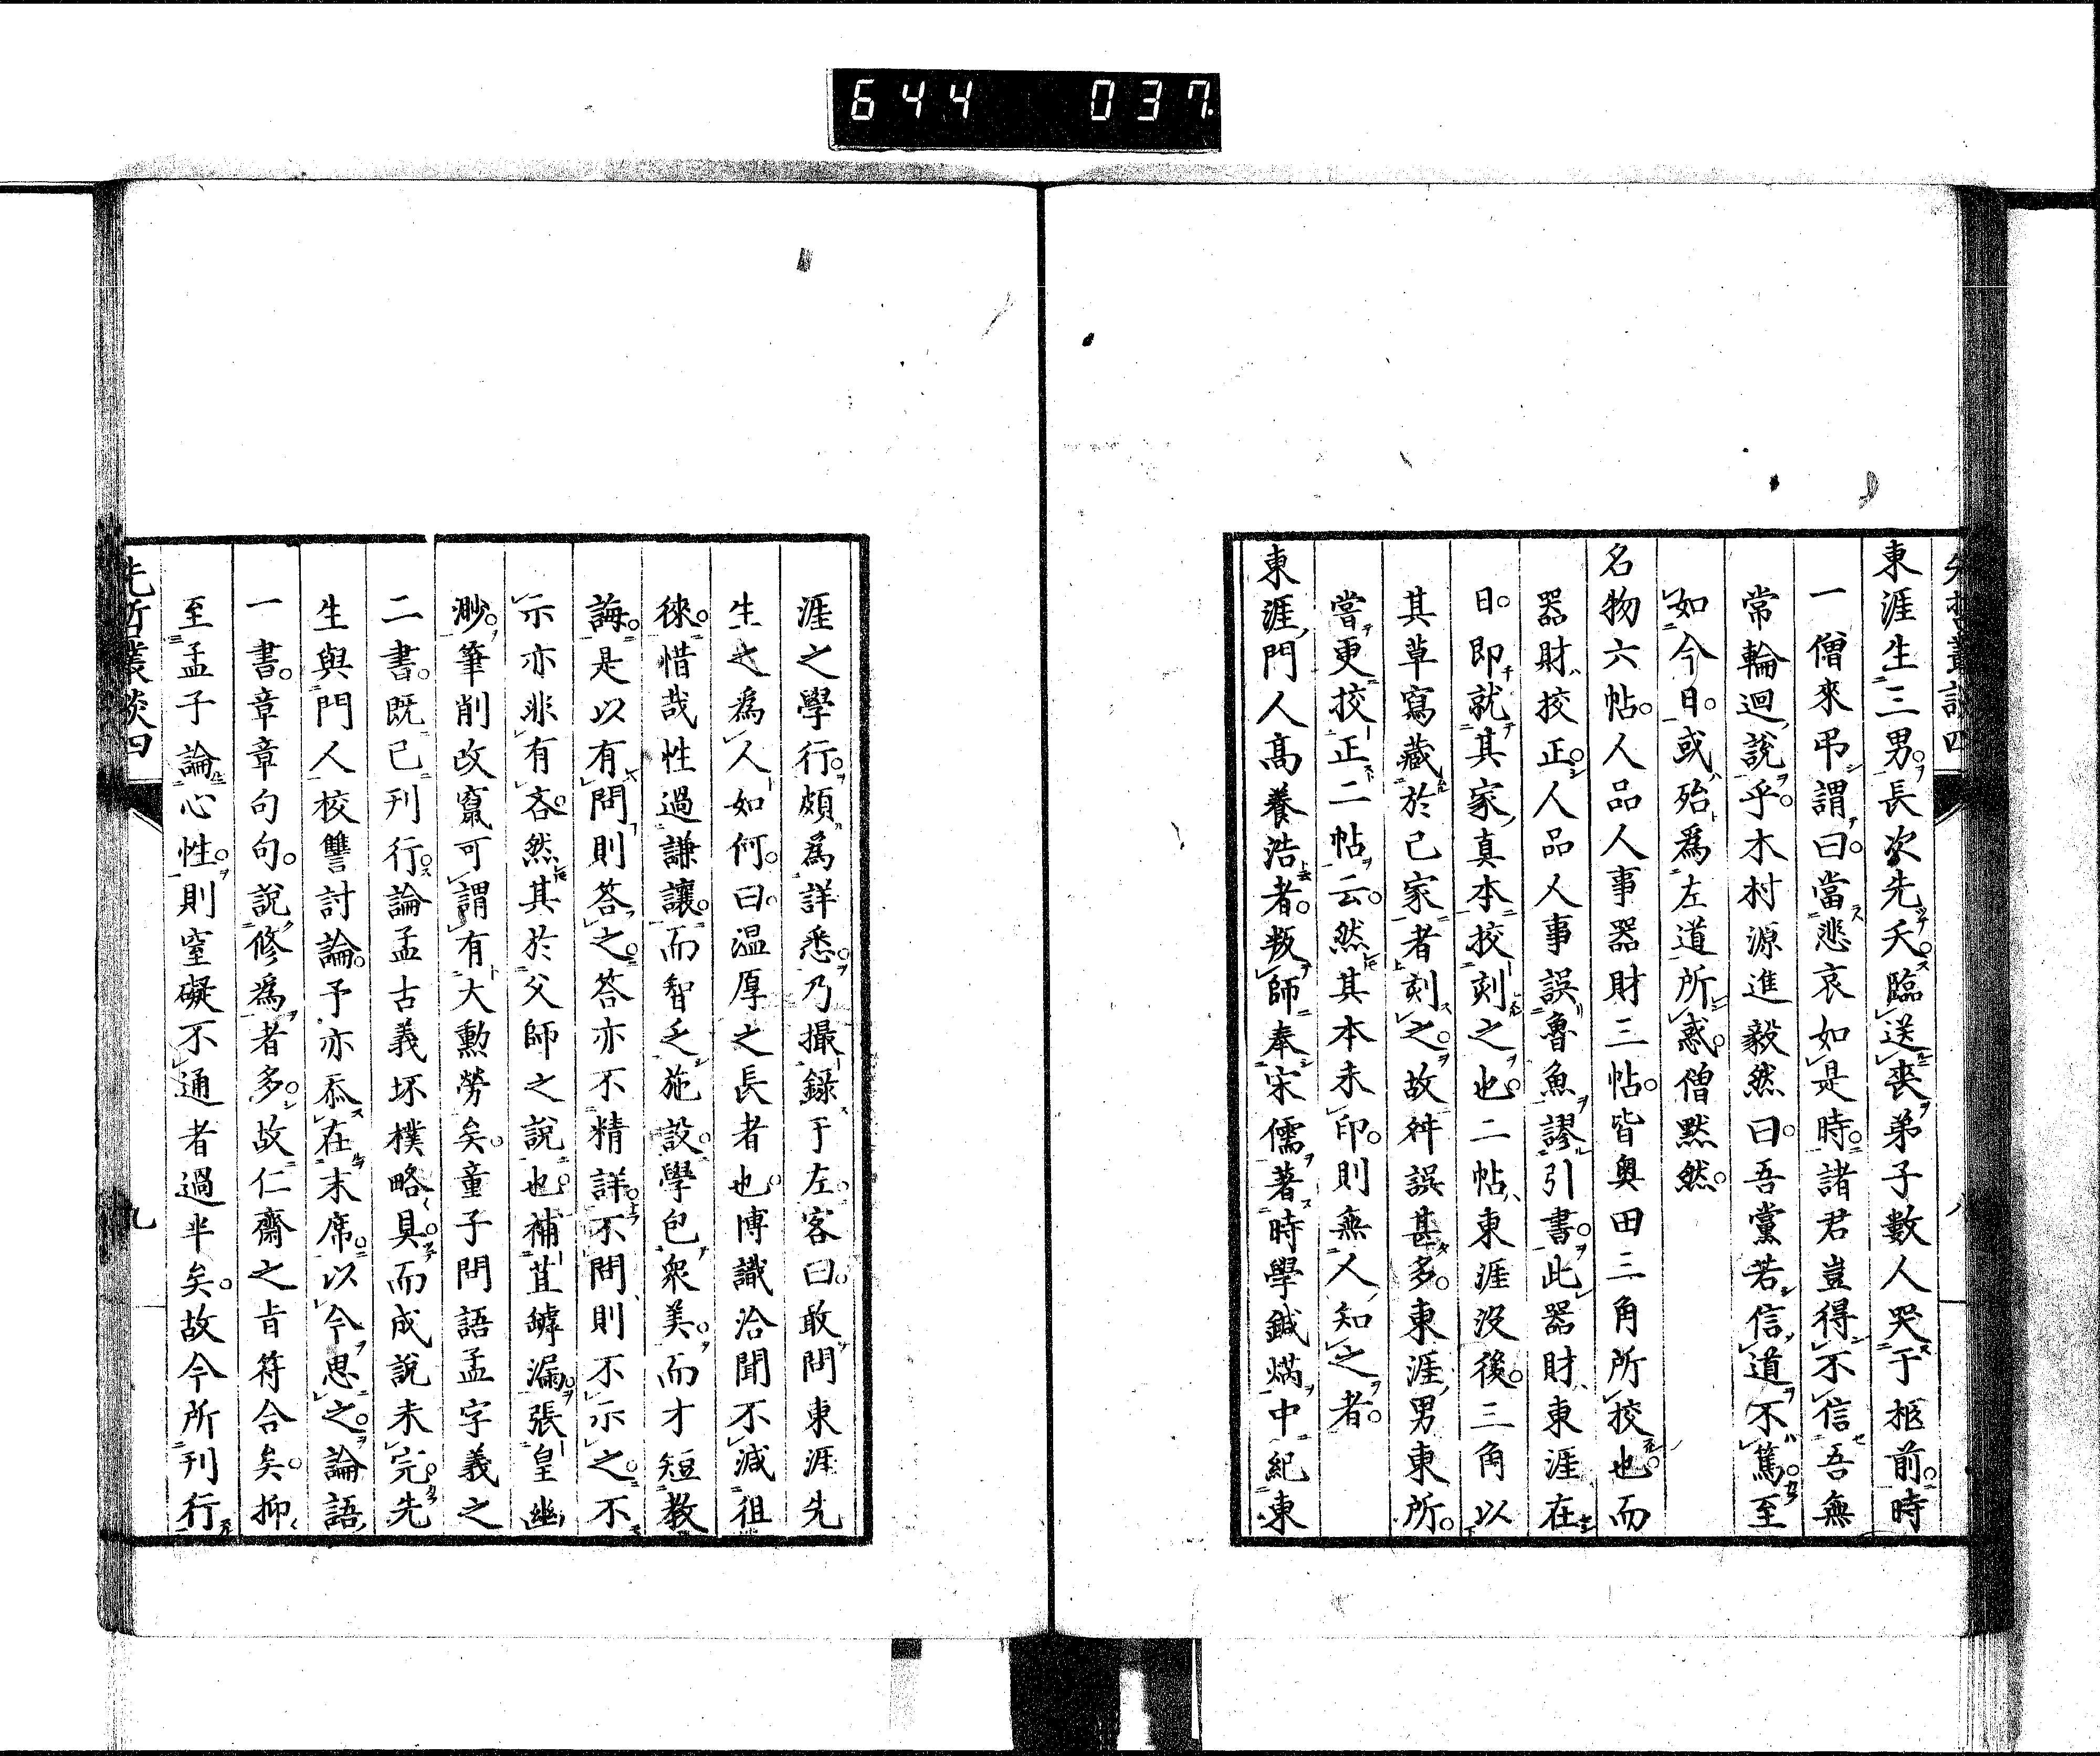 644 037
先哲叢談四
八
東涯生三男。長次先夭。臨送喪弟子數人哭于柩前。時
一僧來弔謂曰。當悲哀如是時。諸君豈得不信吾無
常輪迴說乎。木村源進毅然曰。吾黨若信道不篤。至
如今日。或殆爲左道所惑。僧默然。
名物六帖。人品人事器財三帖。皆奧田三角所挍也。而
器財挍正。人品人事誤魯魚謬引書。此器財東涯在
日。即就其家真本挍刻之也。二帖東涯沒後。三角以
其草寫藏於己家者刻之。故舛誤甚多。東涯男東所。
嘗更挍正二帖云。然其本未印。則無人知之者。
東涯門人高養浩者。叛師奉宋儒著時學鍼焫中紀東
涯之學行。頗爲詳悉。乃撮錄于左。客曰。敢問東涯先
生之爲人如何。曰。溫厚之長者也。博識洽聞不減徂
徠。惜哉性過謙讓。而智乏施設。學包衆美。而才短教
誨。是以有問則答之。答亦不精詳。不問則不示之。不
示亦非有吝。然其於父師之說也。補苴罅漏。張皇幽
渺。筆削改竄可謂有大勳勞矣。童子問語孟字義之
二書。既已刊行。論孟古義坏樸略具。而成說未完。先
生與門人校讐討論。予亦忝在末席。以今思之。論語
一書。章章句句。說修爲者多。故仁齋之旨符合矣。抑
至孟子論心性。則窒礙不通者過半矣。故今所刊行
先哲叢談四
九